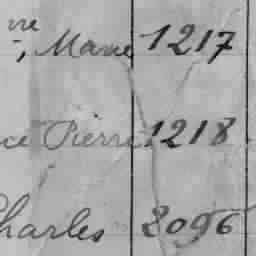 ne
, Marie 1217
ce Pierre 1218
Charles 2096